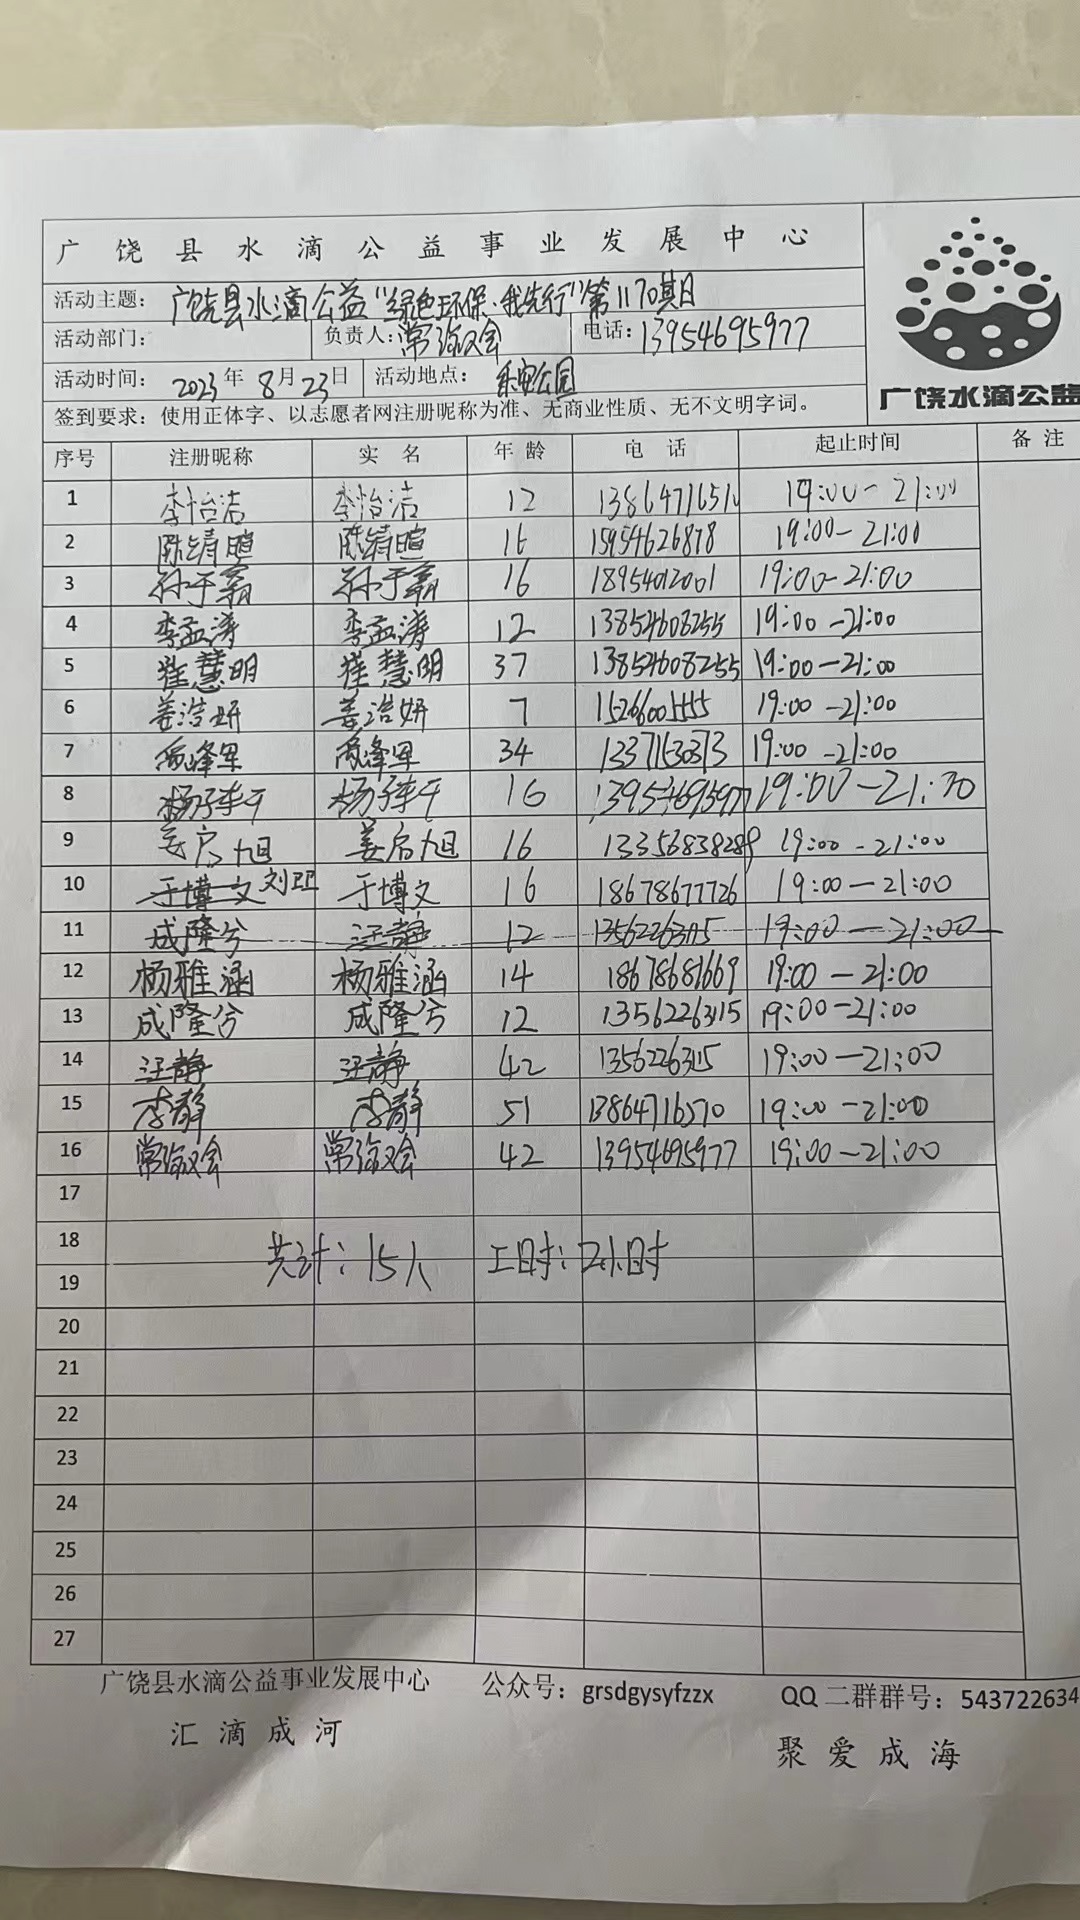 广饶县水滴公益事业发展中心
广饶水滴公益
活动主题：广饶县水滴公益“绿色环保·我先行”第1170期
活动部门： 负责人：常 电话：13954695977
活动时间：2023年8月23日 活动地点：乐安公园
签到要求：使用正体字、以志愿者网注册昵称为准、无商业性质、无不文明字词。
序号 注册昵称 实名 年龄 电话 起止时间 备注
1 李怡洁 李怡洁 12 13864716510 19:00-21:00
2 陈靖暄 陈靖暄 16 15954626878 19:00-21:00
3 孙于 孙于 16 18954012001 19:00-21:00
4 李孟涛 李孟涛 12 13854608255 19:00-21:00
5 崔慧明 崔慧明 37 13854608255 19:00-21:00
6 姜浩妍 姜浩妍 7 15266005555 19:00-21:00
7 峰军 峰军 34 13371530373 19:00-21:00
8 杨 杨 16 13954695977 19:00-21:30
9 姜启旭 姜启旭 16 13356838289 19:00-21:00
10 于博文 刘 于博文 16 18678677726 19:00-21:00
11 成隆兮 汪静 12 13562263115 19:00-21:00
12 杨雅涵 杨雅涵 14 18678681669 19:00-21:00
13 成隆兮 成隆兮 12 13562263115 19:00-21:00
14 汪静 汪静 42 13562263115 19:00-21:00
15 李静 李静 51 13864716510 19:00-21:00
16 常 常 42 13954695977 19:00-21:00
17
18
共计：15人 工时：2小时
19
20
21
22
23
24
25
26
27
广饶县水滴公益事业发展中心 公众号：grsdgysyfzzx QQ二群群号：543722634
汇滴成河
聚爱成海